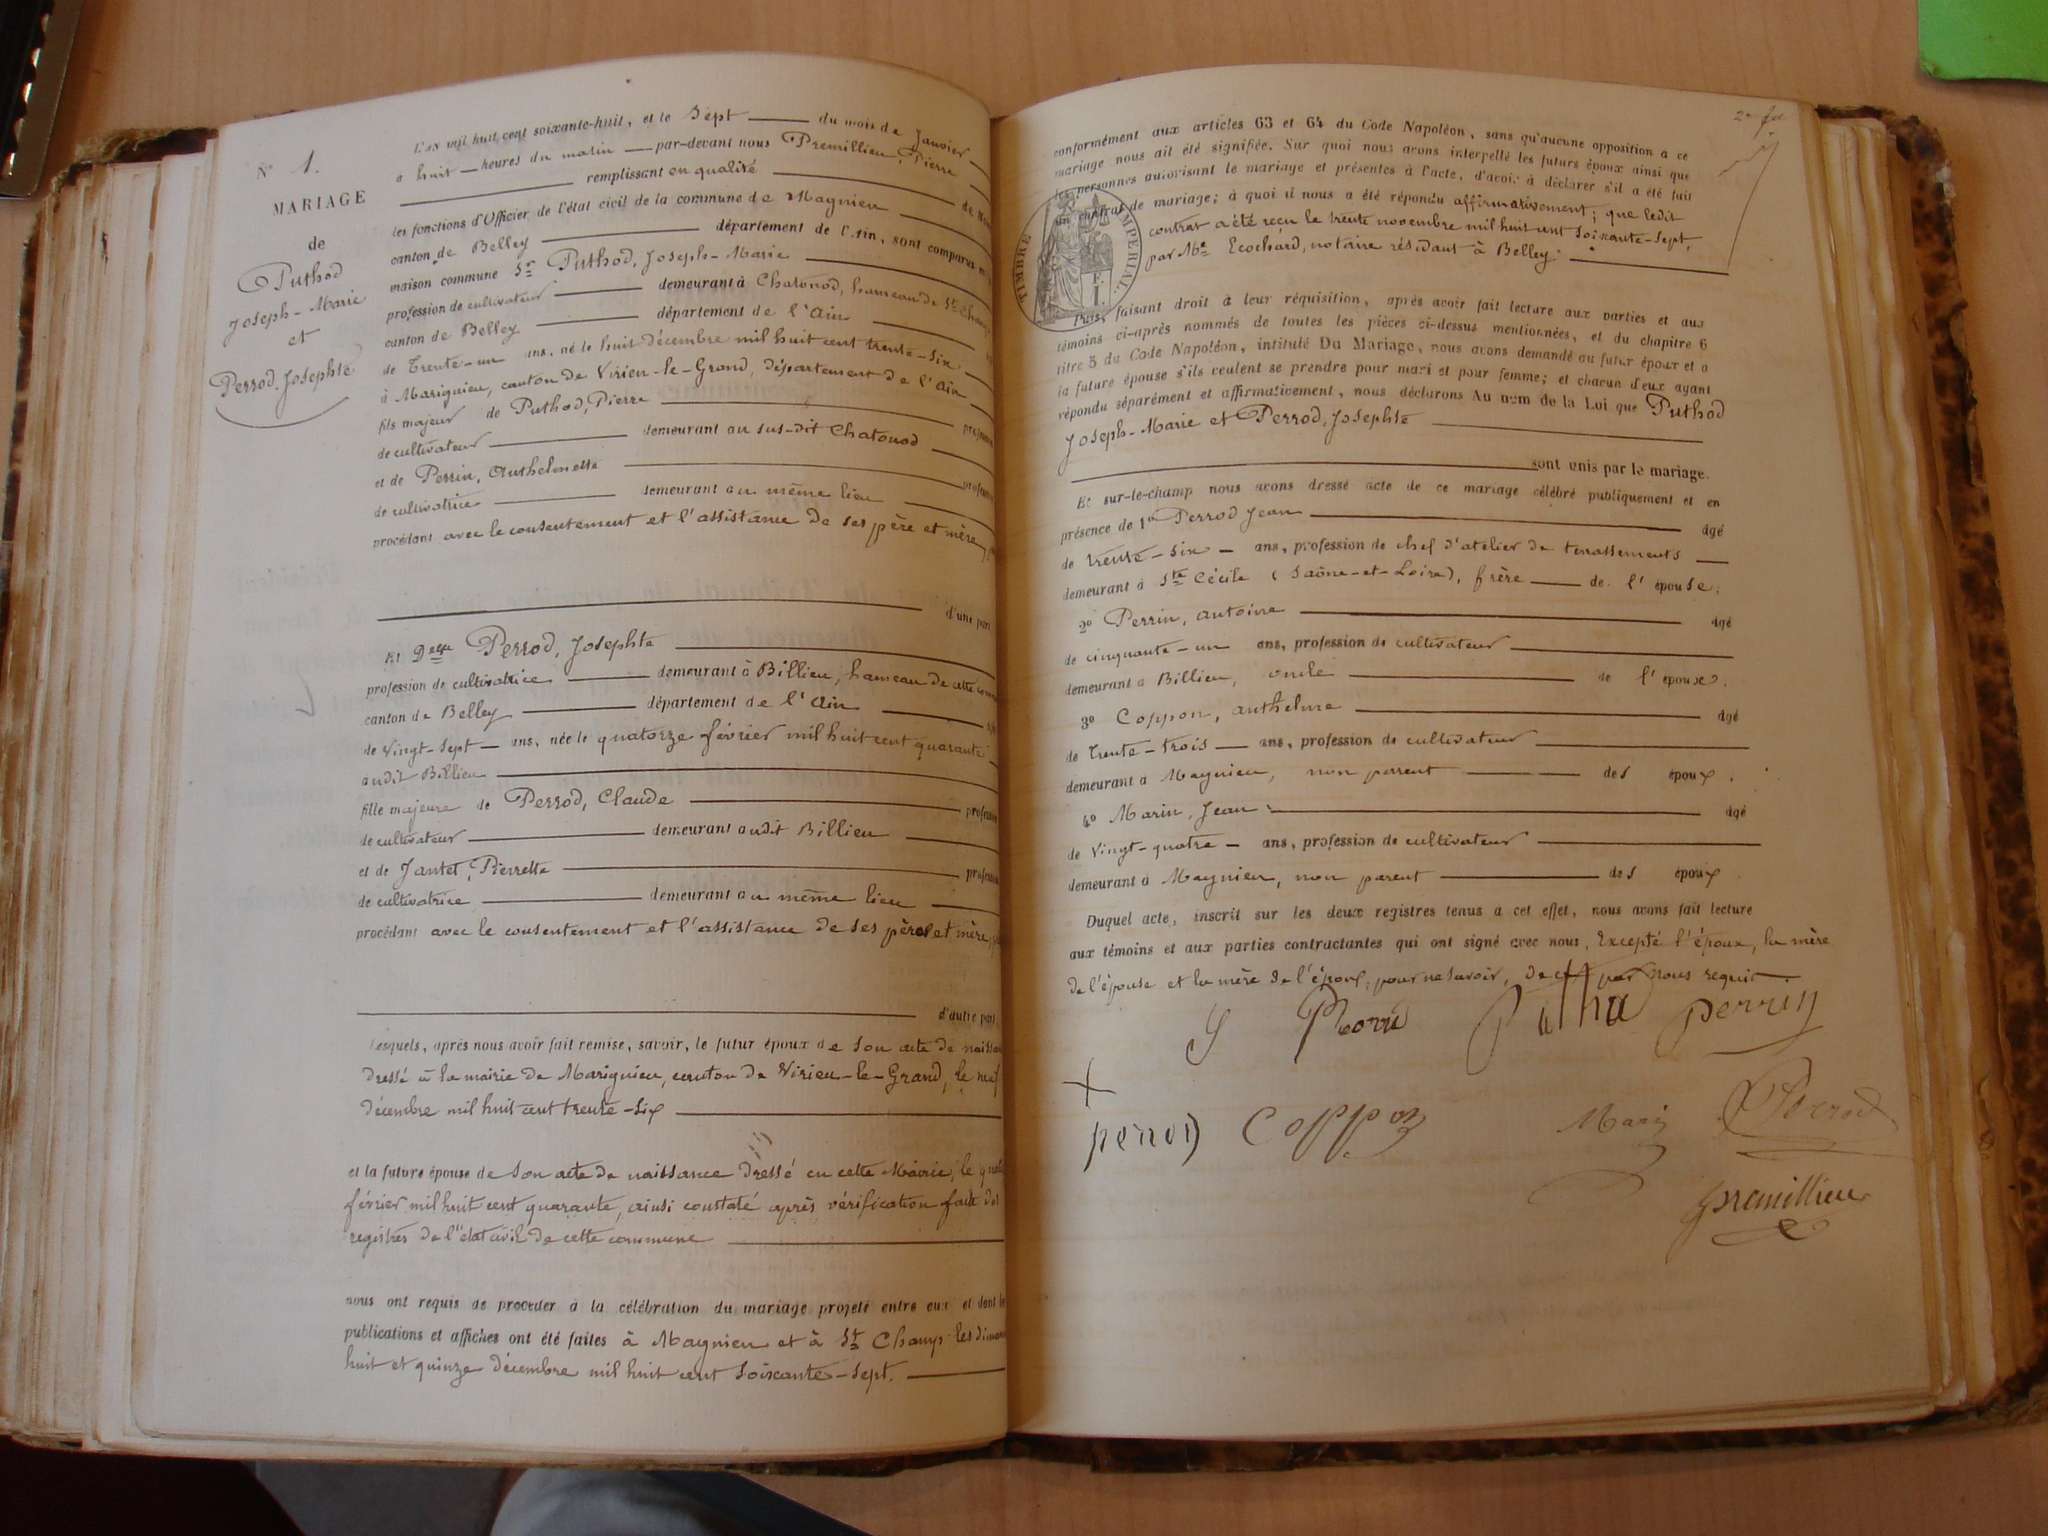 N° 1.
MARIAGE
de
Puthod
Joseph-Marie
et
Perrod, Josephte
L'an mil huit cent soixante-huit, et le Sept du mois de Janvier
à huit heures du matin par-devant nous Premillieu, Pierre
remplissant en qualité de
les fonctions d'Officier de l'état civil de la commune de Magnieu
canton de Belley département de l'Ain, sont comparus
maison commune Sr Puthod, Joseph-Marie
profession de cultivateur demeurant à Chatonod, hameau de St Champ
canton de Belley département de l'Ain
de Trente-un ans, né le huit décembre mil huit cent trente-six
à Marignieu, canton de Virieu-le-Grand, département de l'Ain
fils majeur de Puthod, Pierre
de cultivateur demeurant au sus-dit Chatonod
et de Perrin, Anthelmette
de cultivatrice demeurant au même lieu
procédant avec le consentement et l'assistance de ses père et mère,
d'une part
Et Delle Perrod, Josephte
profession de cultivatrice demeurant à Billieu, hameau de cette
canton de Belley département de l'Ain
de Vingt-sept ans, née le quatorze février mil huit cent quarante
audit Billieu
fille majeure de Perrod, Claude
de cultivateur demeurant audit Billieu
et de Jantet, Pierrette
de cultivatrice demeurant au même lieu
procédant avec le consentement et l'assistance de ses père et mère,
d'autre part
Lesquels, après nous avoir fait remise, savoir, le futur époux de son acte de
dressé à la mairie de Marignieu, canton de Virieu-le-Grand, le
décembre mil huit cent trente-six
et la future épouse de son acte de naissance dressé en cette Mairie, le
février mil huit cent quarante, ainsi constaté après vérification faite
registres de l'état civil de cette commune
nous ont requis de procéder à la célébration du mariage projeté entre eux et dont
publications et affiches ont été faites à Magnieu et à St Champ les
huit et quinze décembre mil huit cent soixante-sept.
conformément aux articles 63 et 64 du Code Napoléon, sans qu'aucune opposition à ce
mariage nous ait été signifiée. Sur quoi nous avons interpellé les futurs époux ainsi que
les personnes autorisant le mariage et présentes à l'acte, d'avoir à déclarer s'il a été fait
un contrat de mariage; à quoi il nous a été répondu affirmativement; que ledit
contrat a été reçu le trente novembre mil huit cent soixante-sept,
par Me Ecochard, notaire résidant à Belley.
TIMBRE IMPERIAL
Puis, faisant droit à leur réquisition, après avoir fait lecture aux parties et aux
témoins ci-après nommés de toutes les pièces ci-dessus mentionnées, et du chapitre 6
titre 5 du Code Napoléon, intitulé Du Mariage, nous avons demandé au futur époux et à
la future épouse s'ils veulent se prendre pour mari et pour femme; et chacun d'eux ayant
répondu séparément et affirmativement, nous déclarons Au nom de la Loi que Puthod
Joseph-Marie et Perrod, Josephte
sont unis par le mariage.
Et sur-le-champ nous avons dressé acte de ce mariage célébré publiquement et en
présence de 1° Perrod Jean âgé
de trente-six ans, profession de chef d'atelier de terrassements
demeurant à Ste Cécile (Saône-et-Loire), frère de l'épouse;
2° Perrin, Antoine âgé
de cinquante-un ans, profession de cultivateur
demeurant à Billieu, oncle de l'époux.
3° Coppon, Anthelme âgé
de Trente-trois ans, profession de cultivateur
demeurant à Magnieu, non parent des époux.
4° Marin, Jean âgé
de Vingt-quatre ans, profession de cultivateur
demeurant à Magnieu, non parent des époux
Duquel acte, inscrit sur les deux registres tenus à cet effet, nous avons fait lecture
aux témoins et aux parties contractantes qui ont signé avec nous, Excepté l'époux, la mère
de l'épouse et la mère de l'époux, pour ne savoir, de ce par nous requis
Perrin
Coppon
Marin
Perrod
Premillieu